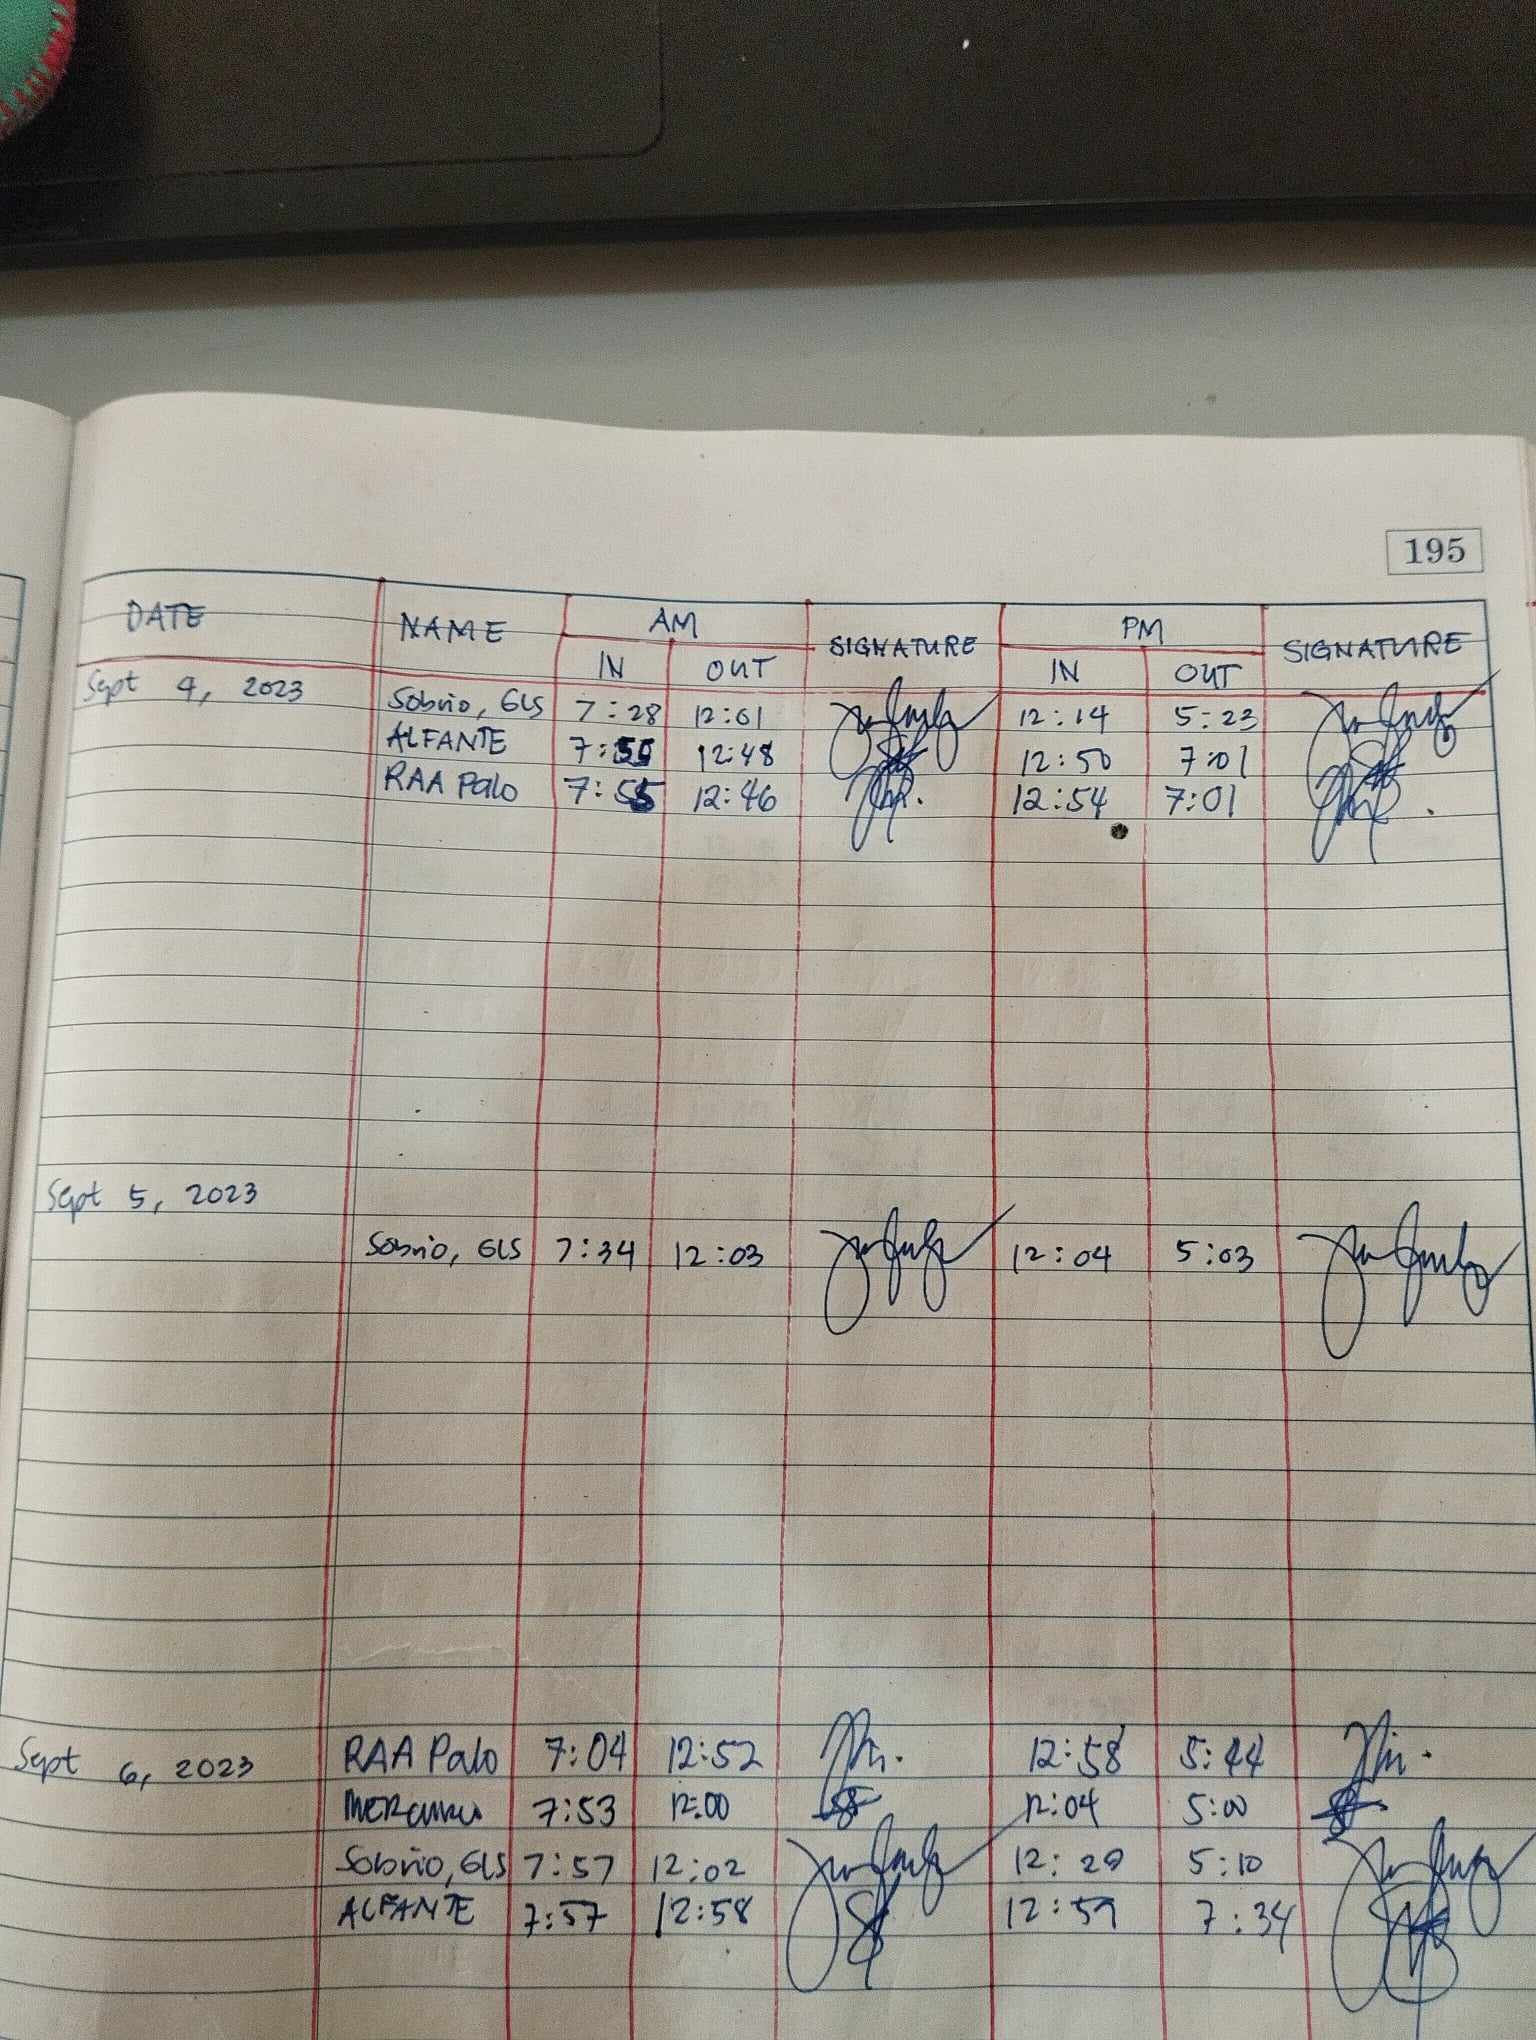 195
DATE NAME AM SIGNATURE PM SIGNATURE
IN OUT IN OUT
Sept 4, 2023 Sobrio, GLS 7:28 12:01 12:14 5:23
ALFANTE 7:55 12:48 12:50 7:01
RAA Palo 7:55 12:46 12:54 7:01
Sept 5, 2023
Sobrio, GLS 7:34 12:03 12:04 5:03
Sept 6, 2023 RAA Palo 7:04 12:52 12:58 5:44
7:53 12:00 12:04 5:00
Sobrio, GLS 7:57 12:02 12:20 5:10
ALFANTE 7:57 12:58 12:59 7:34